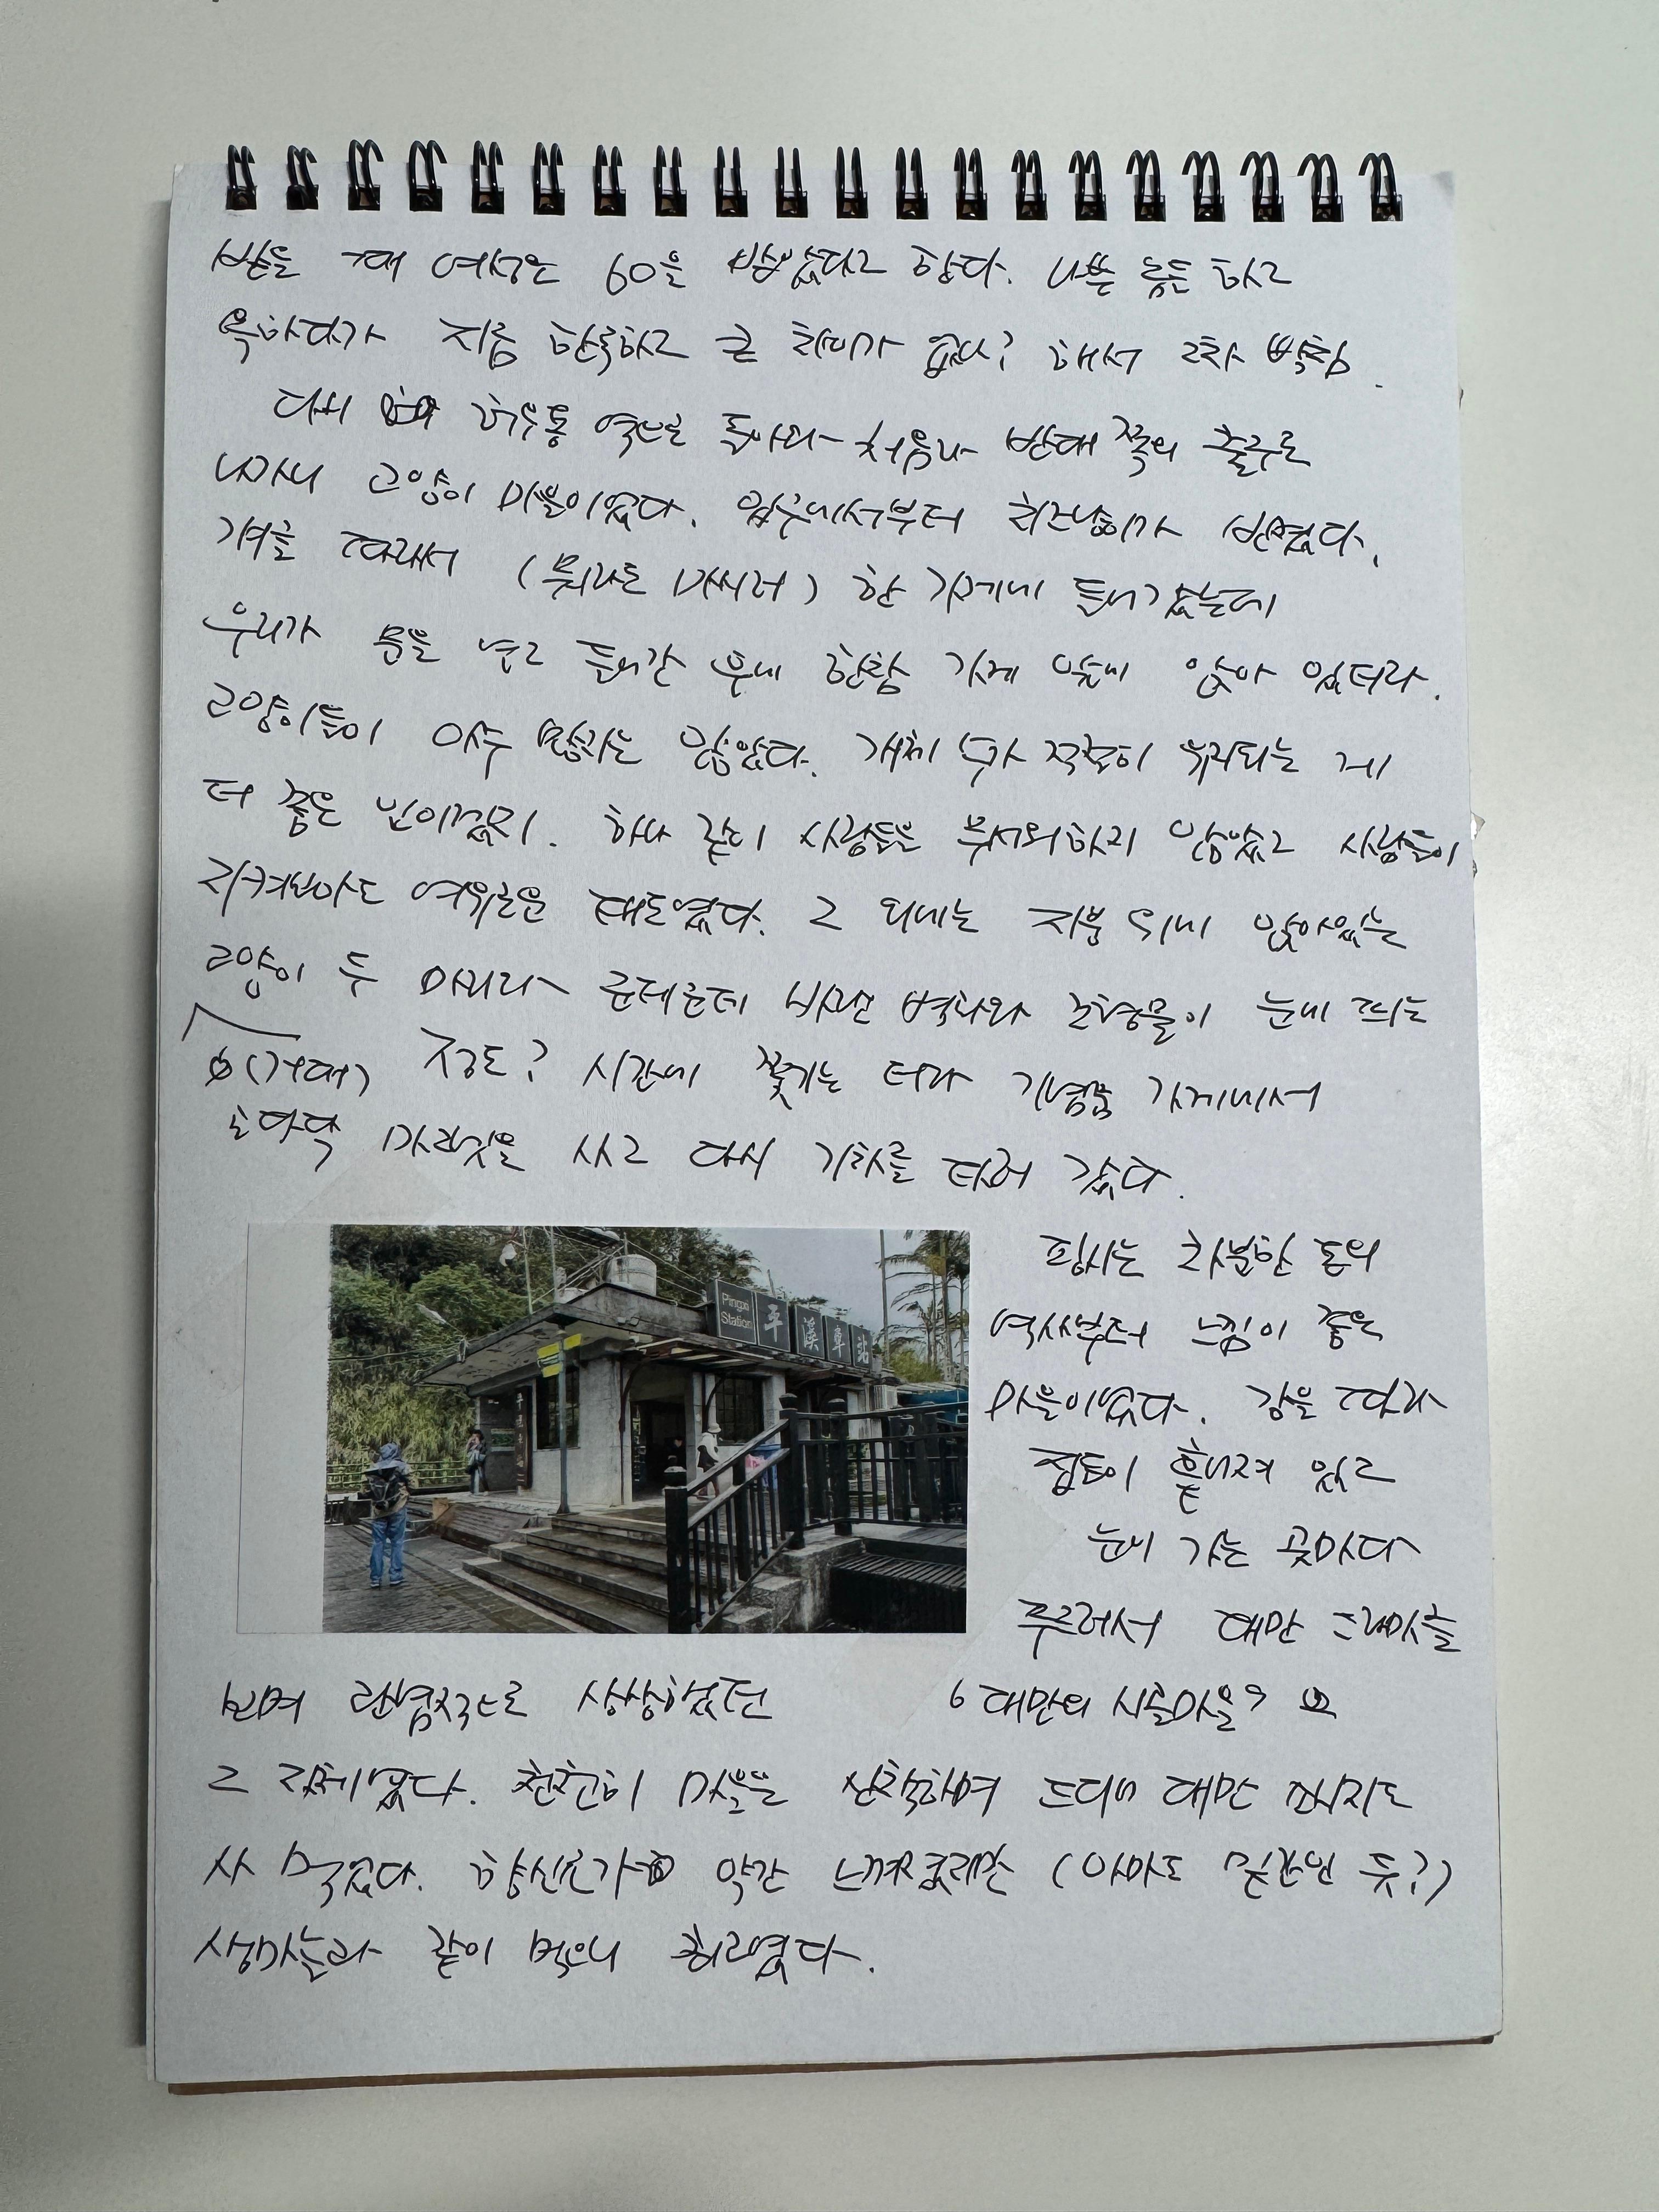 받을 때 여성은 60을 받았다고 한다. 나쁜 놈들 하고
욕하다가 지금 한국하고 큰 차이가 없나? 해서 2차 빡침.
다시 허우통 역으로 돌아와 처음과 반대 쪽의 출구로
나가니 고양이 마을이었다. 입구에서부터 치즈냥이가 반겼다.
걔를 따라서 (뭐라도 마시러) 한 가게에 들어갔는데
우리가 문을 열고 들어간 후에 한참 가게 앞에 앉아 있더라.
고양이들이 아주 많지는 않았다. 개체 수가 적절히 유지되는 게
더 좋은 일이겠지. 하나 같이 사람들을 무서워하지 않았고 사람들이
지켜봐도 여유로운 태도였다. 그 외에는 지붕 위에 앉아있는
고양이 두 마리와 군데군데 바랜 벽화와 조형물이 눈에 띄는
(거대) 정도? 시간에 쫓기는 터라 기념품 가게에서
후다닥 마그넷을 사고 다시 기차를 타러 갔다.
Pingxi
Station
平溪車站
핑시는 차분한 톤의
역사부터 느낌이 좋은
마을이었다. 강을 따라
집들이 흩어져 있고
눈에 가는 곳마다
푸르러서 대만 드라마를
보며 관념적으로 상상했던 '대만의 시골마을'
그 자체였다. 천천히 마을을 산책하며 드디어 대만 소시지도
사 먹었다. 향신료가 약간 느껴졌지만 (아마도 팔각인 듯?)
생마늘과 같이 먹으니 최고였다.